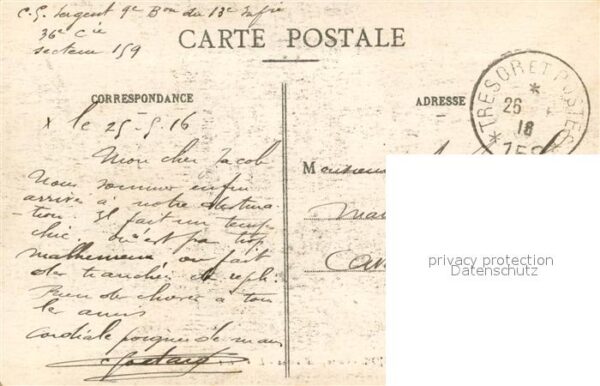 Sergent 9e Bon du 13e Infie
36e Cie
secteur 159
CARTE POSTALE
CORRESPONDANCE
ADRESSE
TRESOR ET POSTES
26
le 25-5-16
Mon cher Jacob
Nous sommes enfin
arrivés à notre destina
tion. Il fait un temps
chic. On n'est pas trop
malheureux, on fait
des tranchées de repli.
Rien de
les amis
Cordiale poignée de main
M
privacy protection
Datenschutz